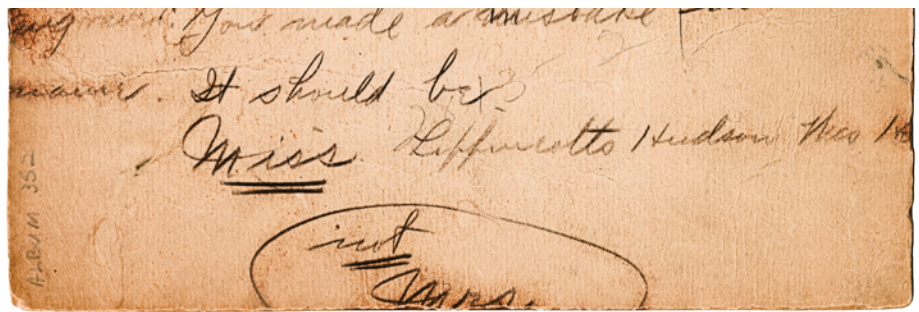 You made a mistake
It should be
Miss Lippincotts Hudson
not
Mrs.
ALBUM 352